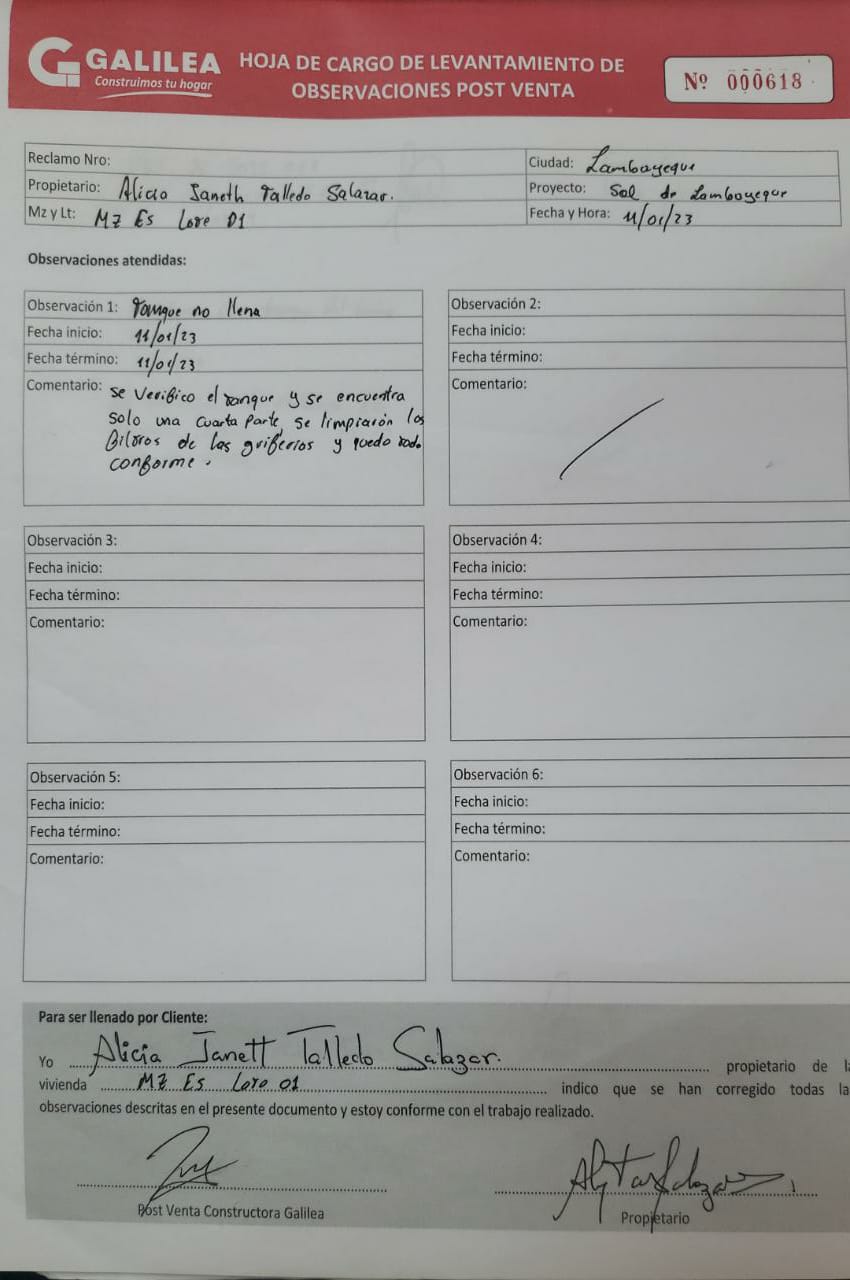 GALILEA
Construimos tu hogar
HOJA DE CARGO DE LEVANTAMIENTO DE
OBSERVACIONES POST VENTA
Nº 000618
Reclamo Nro:
Ciudad: Lambayeque
Propietario: Alicia Janeth Talledo Salazar.
Proyecto: Sol de Lambayeque
Mz y Lt: MZ Es Lote 01
Fecha y Hora: 11/01/23
Observaciones atendidas:
Observación 1: Tanque no llena
Fecha inicio: 11/01/23
Fecha término: 11/01/23
Comentario: se Verifico el tanque y se encuentra
solo una cuarta parte, se limpiarón los
filtros de las griferias y quedo todo
conforme.
Observación 2:
Fecha inicio:
Fecha término:
Comentario:
Observación 3:
Fecha inicio:
Fecha término:
Comentario:
Observación 4:
Fecha inicio:
Fecha término:
Comentario:
Observación 5:
Fecha inicio:
Fecha término:
Comentario:
Observación 6:
Fecha inicio:
Fecha término:
Comentario:
Para ser llenado por Cliente:
Yo Alicia Janett Talledo Salazar. propietario de l
vivienda MZ Es Lote 01 indico que se han corregido todas la
observaciones descritas en el presente documento y estoy conforme con el trabajo realizado.
Post Venta Constructora Galilea
Propietario